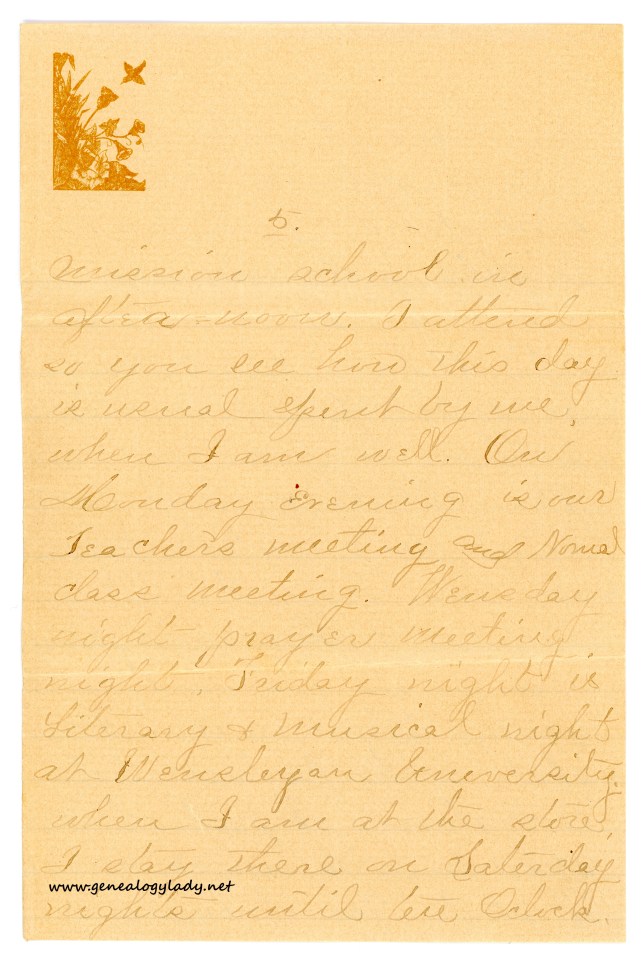 5.
mission school in
after-noon. I attend
so you see how this day
is usual spent by me,
when I am well. On
Monday Evening is our
Teachers meeting and Nomal
class meeting. Wensday
night prayer meeting
night. Friday night is
Literary & Musical night
at Wensleyan Univversity.
when I am at the store,
I stay there on Saterday
nights until ten Oclock.
www.genealogylady.net